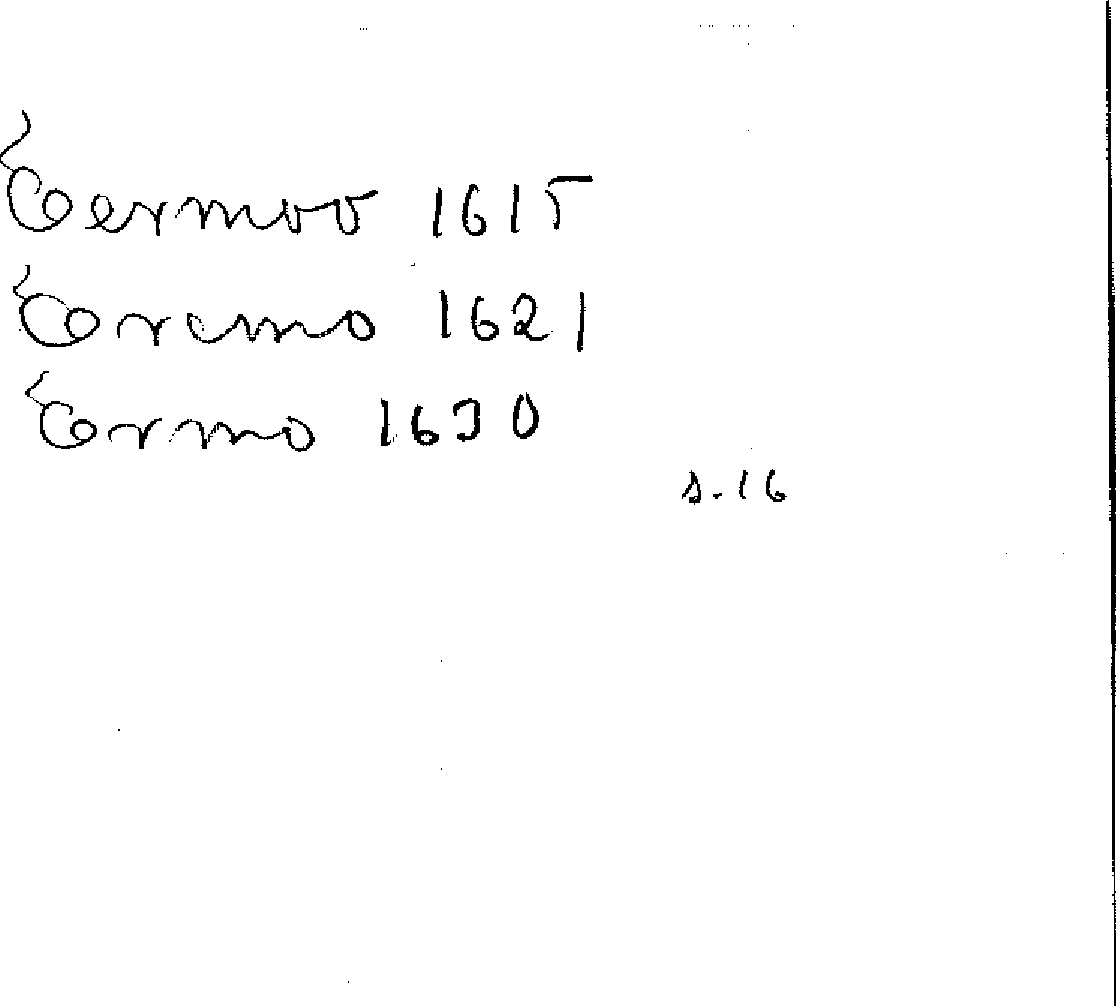 Cermoo 1615
Coremo 1621
Cormo 1630
s. 16